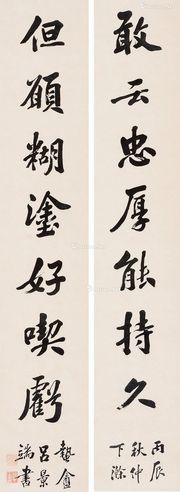 敢云忠厚能持久
丙辰
秋仲
下澣
但願糊塗好喫虧
蟄盦
呂景
端書